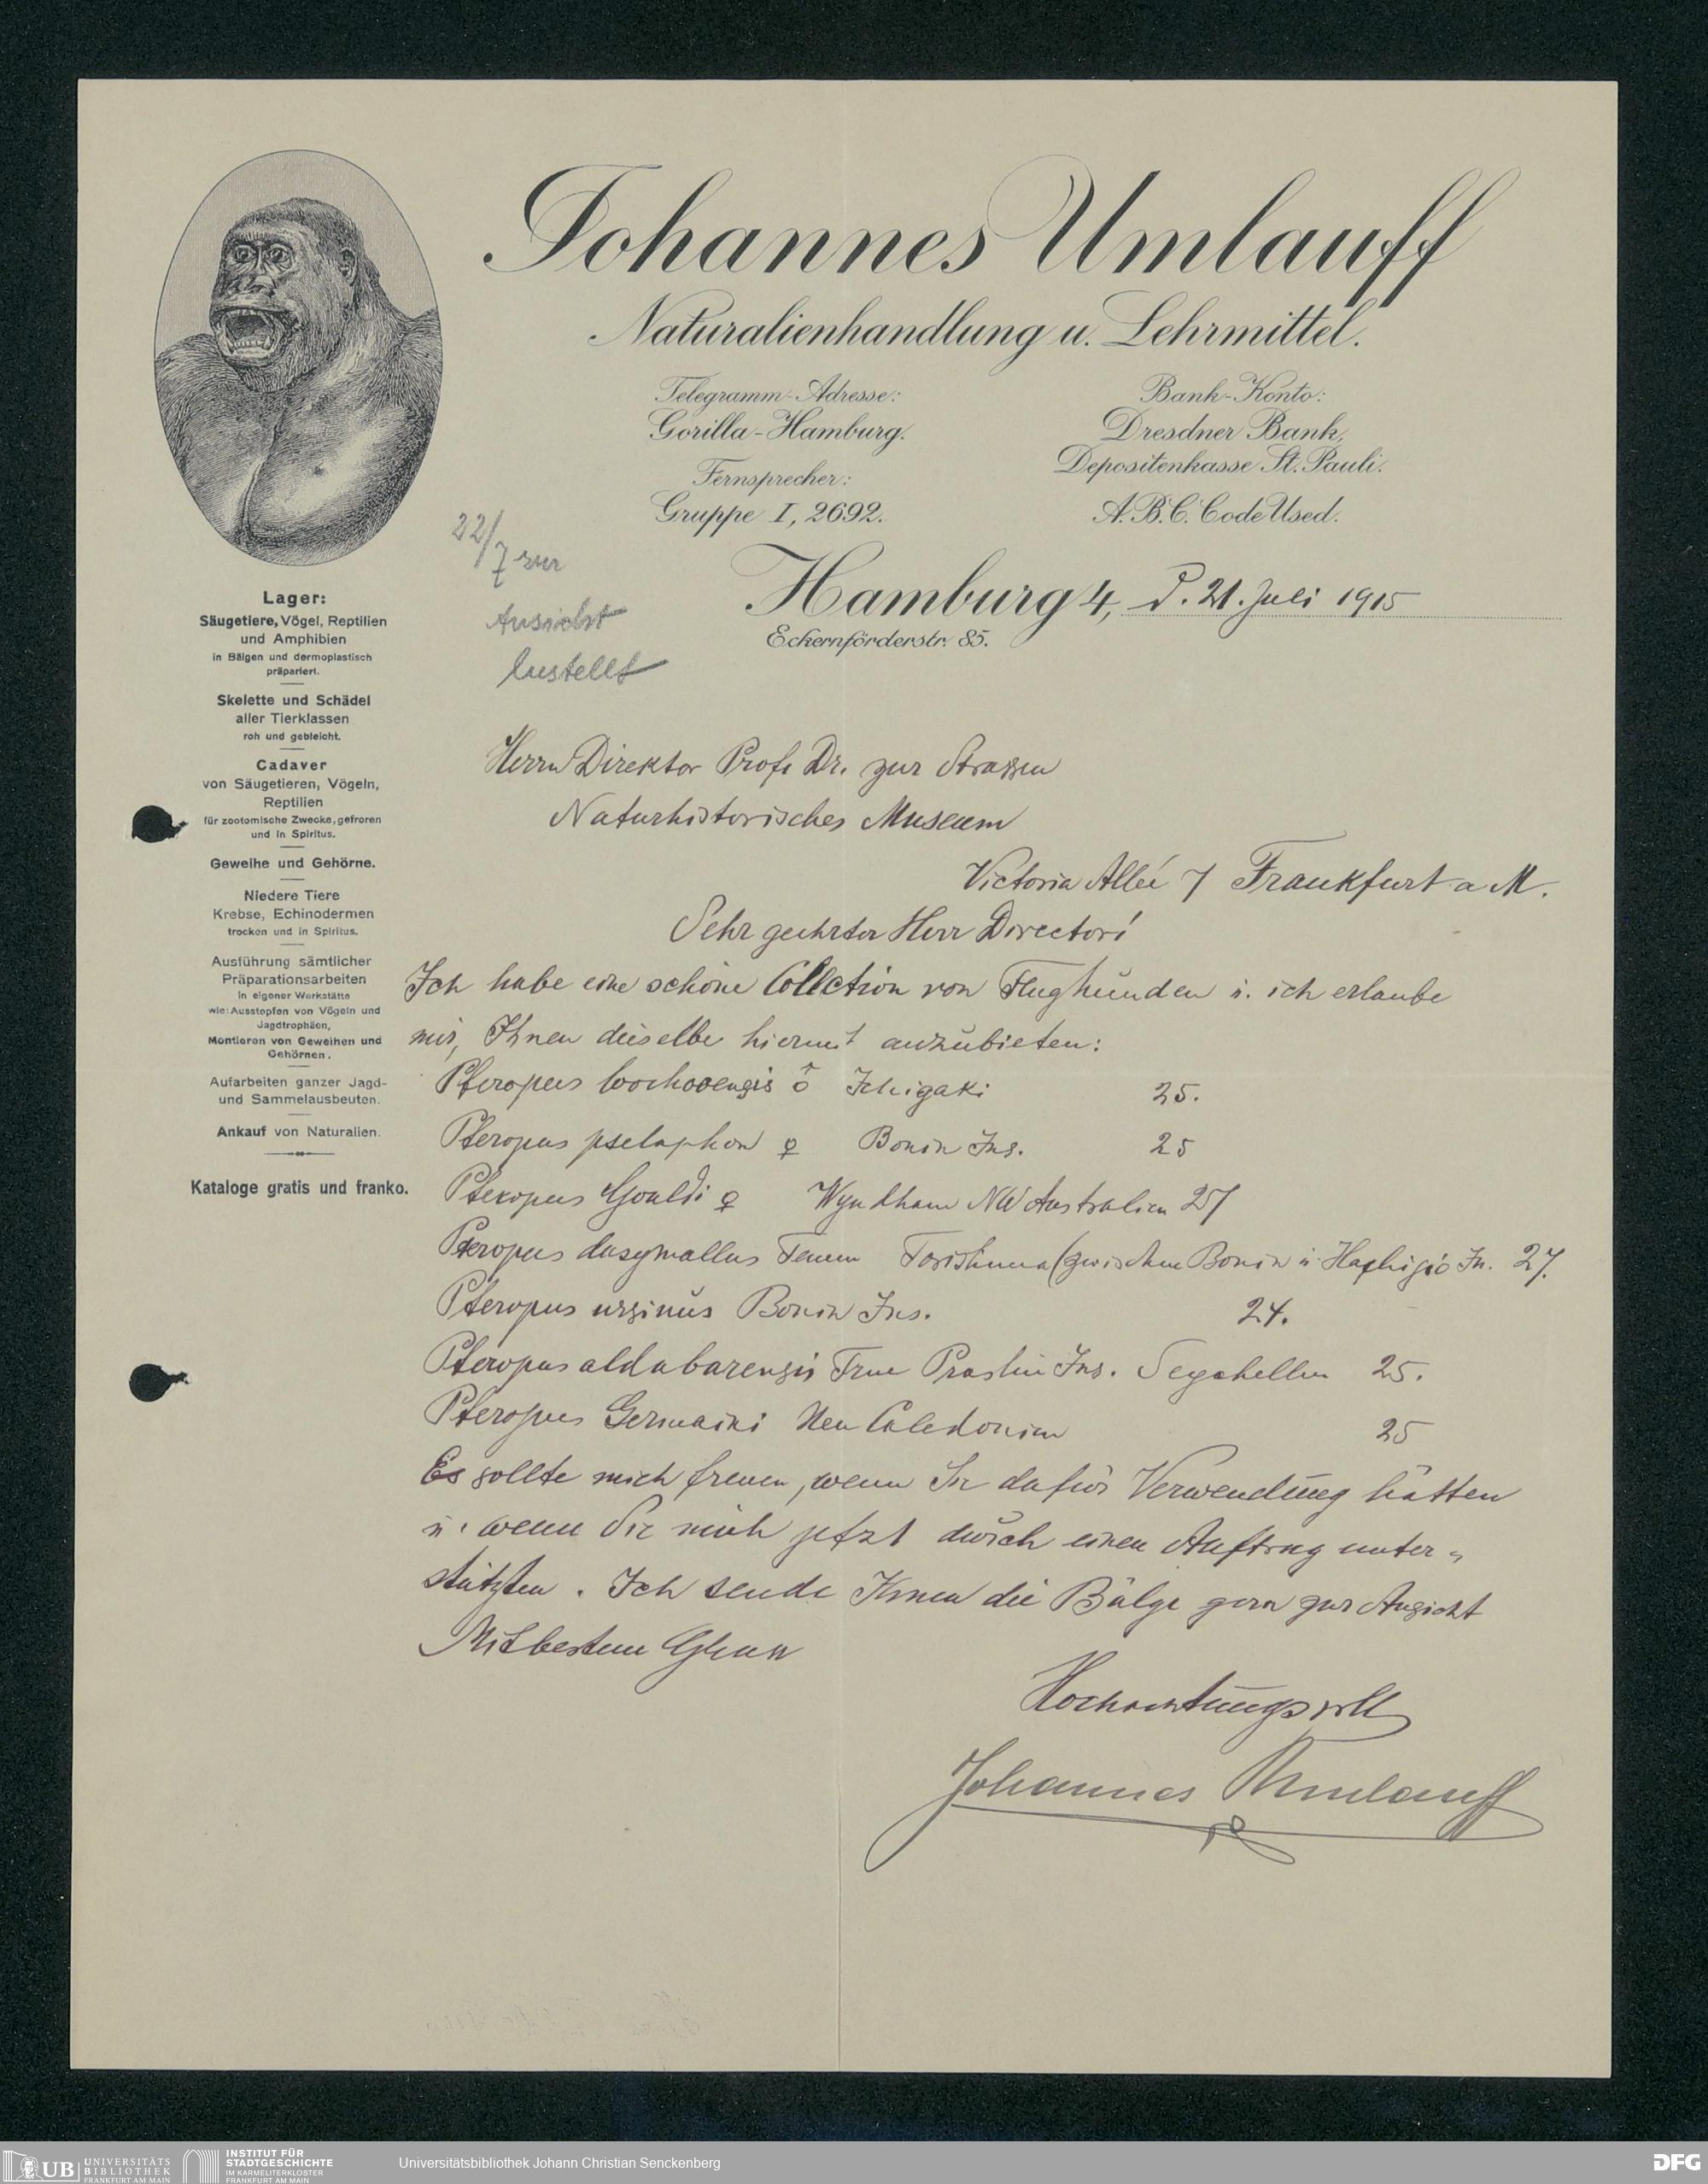 Johannes Umlauff
Naturalienhandlung u. Lehrmittel.
Telegramm-Adresse:
Gorilla-Hamburg.
Fernsprecher:
Gruppe I, 2692.
Bank-Konto:
Dresdner Bank,
Depositenkasse St. Pauli.
A.B.C. Code Used.
22/7 zur
Ansicht
bestellt
Hamburg 4, d. 21. Juli 1915
Eckernförderstr. 85.
Lager:
Säugetiere, Vögel, Reptilien
und Amphibien
in Bälgen und dermoplastisch
präpariert.
Skelette und Schädel
aller Tierklassen
roh und gebleicht.
Cadaver
von Säugetieren, Vögeln,
Reptilien
für zootomische Zwecke, gefroren
und in Spiritus.
Geweihe und Gehörne.
Niedere Tiere
Krebse, Echinodermen
trocken und in Spiritus.
Ausführung sämtlicher
Präparationsarbeiten
in eigener Werkstätte
wie: Ausstopfen von Vögeln und
Jagdtrophäen,
Montieren von Geweihen und
Gehörnen.
Aufarbeiten ganzer Jagd-
und Sammelausbeuten.
Ankauf von Naturalien.
Kataloge gratis und franko.
Herrn Direktor Prof. Dr. zur Strassen
Naturhistorisches Museum
Victoria Allee 7 Frankfurt a M.
Sehr geehrter Herr Director!
Ich habe eine schöne Collection von Flughunden u. ich erlaube
mir, Ihnen dieselbe hiermit anzubieten:
Pteropus loochooensis ♂ Ichigaki 25.
Pteropus pselaphon ♀ Bonin Ins. 25
Pteropus Gouldi ♀ Wyndham NW Australien 25
Pteropus dasymallus Temm Torishima (zwischen Bonin u. In. 27.
Pteropus ursinus Bonin Ins. 24.
Pteropus aldabarensis True Praslin Ins. Seychellen 25.
Pteropus Germaini Neu Caledonien 25
Es sollte mich freuen, wenn Sie dafür Verwendung hätten
u. wenn Sie mich jetzt durch einen Auftrag unter-
stützten. Ich sende Ihnen die Bälge gern zur Ansicht
Mit bestem Gruss
Hochachtungsvoll
Johannes Umlauff
UB UNIVERSITÄTS
BIBLIOTHEK
FRANKFURT AM MAIN
INSTITUT FÜR
STADTGESCHICHTE
IM KARMELITERKLOSTER
FRANKFURT AM MAIN
Universitätsbibliothek Johann Christian Senckenberg
DFG